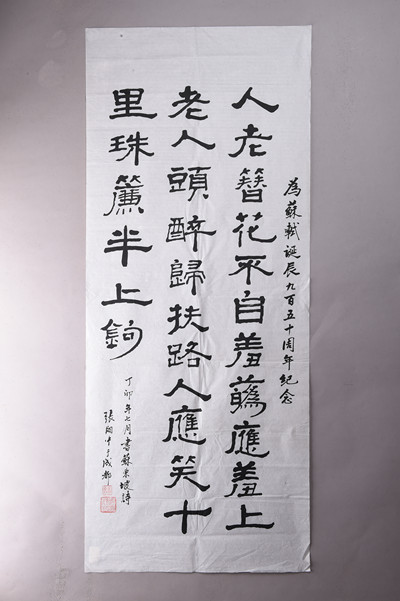 為蘇軾誕辰九百五十周年紀念
人老簪花不自羞蘤應羞上
老人頭醉歸扶路人應笑十
里珠簾半上鉤
丁卯年七月書蘇東坡詩
張 于成都